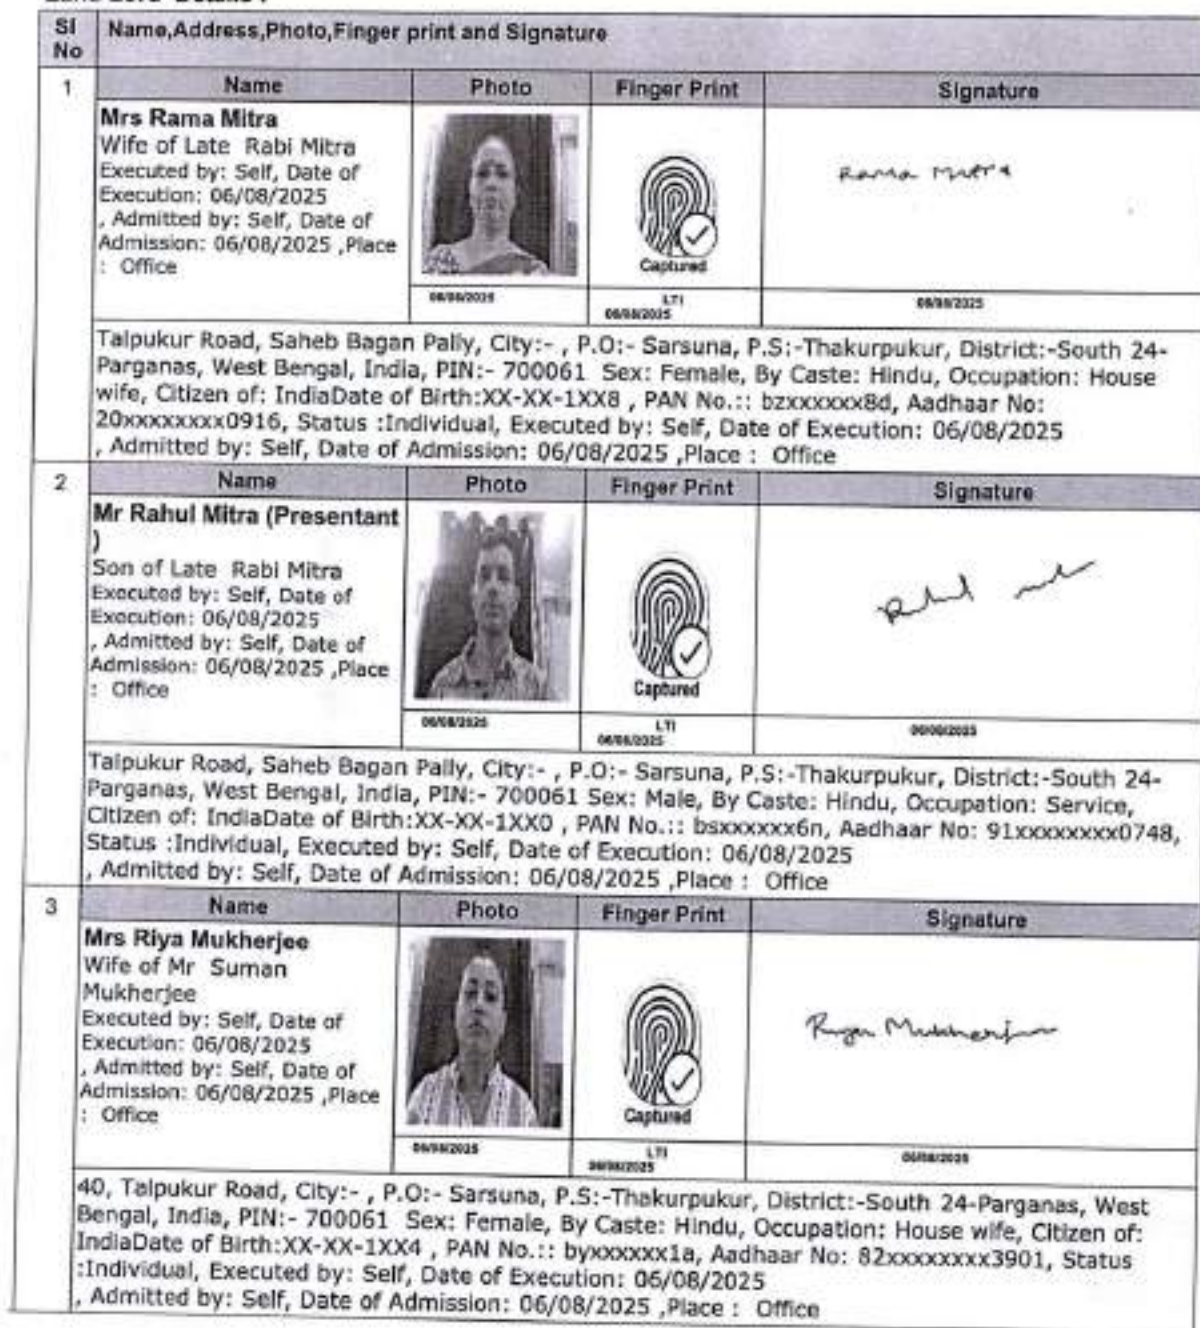 Land Lord Details :
Sl No
Name,Address,Photo,Finger print and Signature
1
Name
Photo
Finger Print
Signature
Mrs Rama Mitra
Wife of Late Rabi Mitra
Executed by: Self, Date of
Execution: 06/08/2025
, Admitted by: Self, Date of
Admission: 06/08/2025 ,Place
: Office
Captured
Rama Mitra
06/08/2025
LTI
06/08/2025
06/08/2025
Talpukur Road, Saheb Bagan Pally, City:- , P.O:- Sarsuna, P.S:-Thakurpukur, District:-South 24-
Parganas, West Bengal, India, PIN:- 700061 Sex: Female, By Caste: Hindu, Occupation: House
wife, Citizen of: IndiaDate of Birth:XX-XX-1XX8 , PAN No.:: bzxxxxxx8d, Aadhaar No:
20xxxxxxxx0916, Status :Individual, Executed by: Self, Date of Execution: 06/08/2025
, Admitted by: Self, Date of Admission: 06/08/2025 ,Place : Office
2
Name
Photo
Finger Print
Signature
Mr Rahul Mitra (Presentant
)
Son of Late Rabi Mitra
Executed by: Self, Date of
Execution: 06/08/2025
, Admitted by: Self, Date of
Admission: 06/08/2025 ,Place
: Office
Captured
06/08/2025
LTI
06/08/2025
06/08/2025
Talpukur Road, Saheb Bagan Pally, City:- , P.O:- Sarsuna, P.S:-Thakurpukur, District:-South 24-
Parganas, West Bengal, India, PIN:- 700061 Sex: Male, By Caste: Hindu, Occupation: Service,
Citizen of: IndiaDate of Birth:XX-XX-1XX0 , PAN No.:: bsxxxxxx6n, Aadhaar No: 91xxxxxxxx0748,
Status :Individual, Executed by: Self, Date of Execution: 06/08/2025
, Admitted by: Self, Date of Admission: 06/08/2025 ,Place : Office
3
Name
Photo
Finger Print
Signature
Mrs Riya Mukherjee
Wife of Mr Suman
Mukherjee
Executed by: Self, Date of
Execution: 06/08/2025
, Admitted by: Self, Date of
Admission: 06/08/2025 ,Place
: Office
Captured
Riya Mukherjee
06/08/2025
LTI
06/08/2025
06/08/2025
40, Talpukur Road, City:- , P.O:- Sarsuna, P.S:-Thakurpukur, District:-South 24-Parganas, West
Bengal, India, PIN:- 700061 Sex: Female, By Caste: Hindu, Occupation: House wife, Citizen of:
IndiaDate of Birth:XX-XX-1XX4 , PAN No.:: byxxxxxx1a, Aadhaar No: 82xxxxxxxx3901, Status
:Individual, Executed by: Self, Date of Execution: 06/08/2025
, Admitted by: Self, Date of Admission: 06/08/2025 ,Place : Office